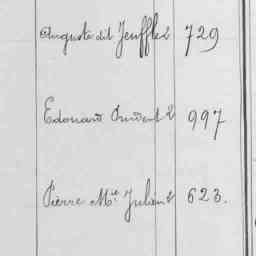 Auguste dit Jeuffle 2 729
Edouard Prudent 2 997
Pierre Mie Julien 2 623.